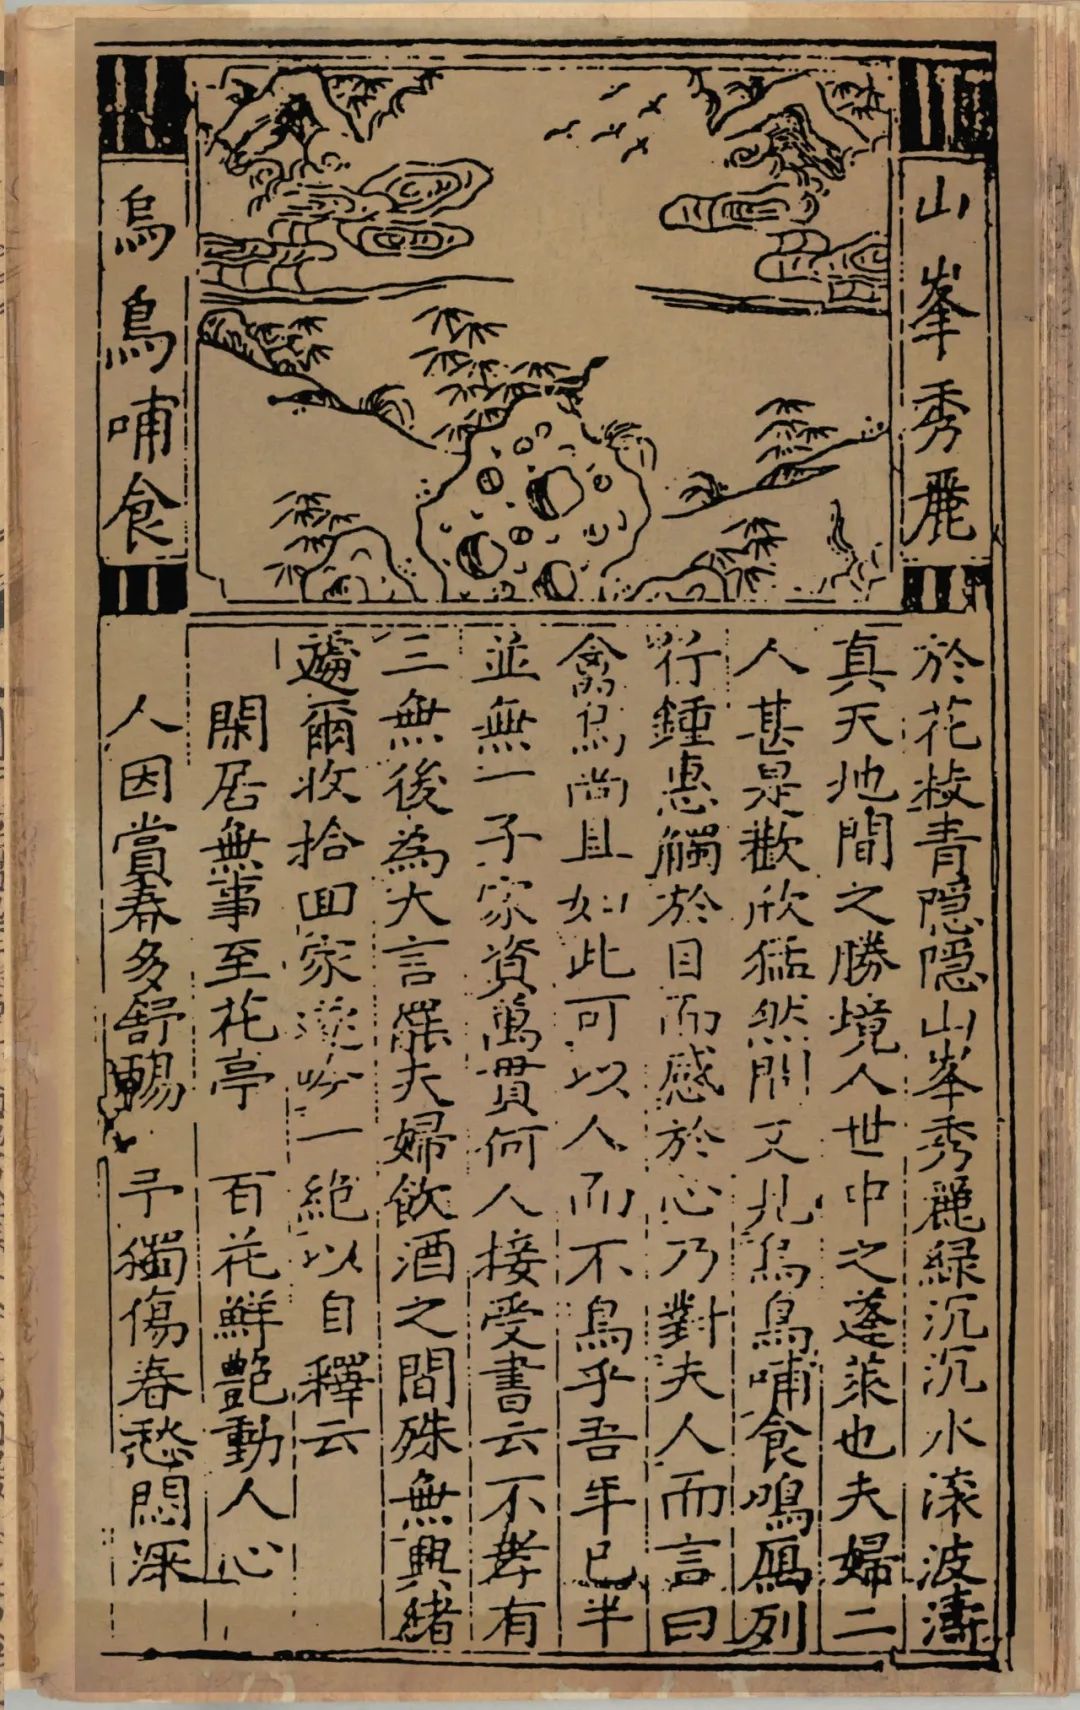 山峯秀麗
烏鳥哺食
於花枝青隠隠山峯秀麗緑沉沉水滚波濤
真天地間之勝境人世中之蓬萊也夫婦二
人甚是歡欣猛然間又見烏鳥哺食鳴鴈列
行鍾惠觸於目而感於心乃對夫人而言曰
禽鳥尚且如此可以人而不鳥乎吾年已半
並無一子家資萬貫何人接受書云不孝有
三無後為大言罷夫婦飲酒之間殊無興緒
遂爾收拾回家遂吟一絶以自釋云
閑居無事至花亭 百花鮮艶動人心
人因賞春多舒暢 予獨傷春愁悶深